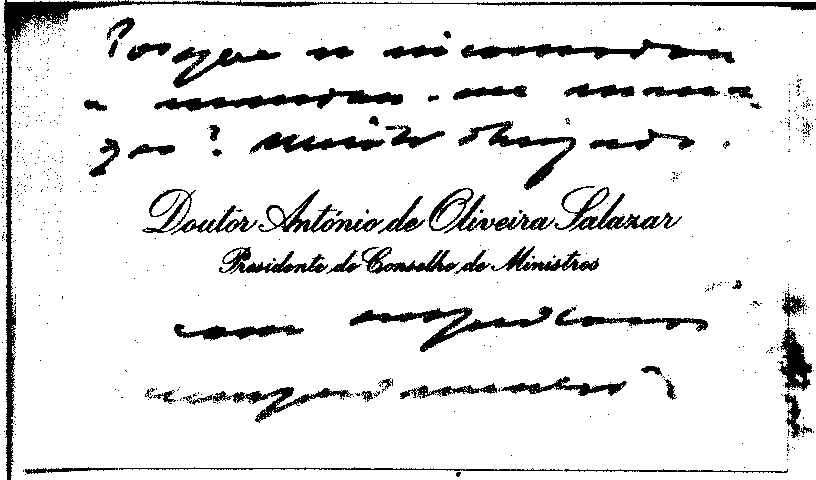 Porque se incomodou
a mandar-me
? Muito obrigado.
Doutor António de Oliveira Salazar
Presidente do Conselho de Ministros
com
cumprimentos